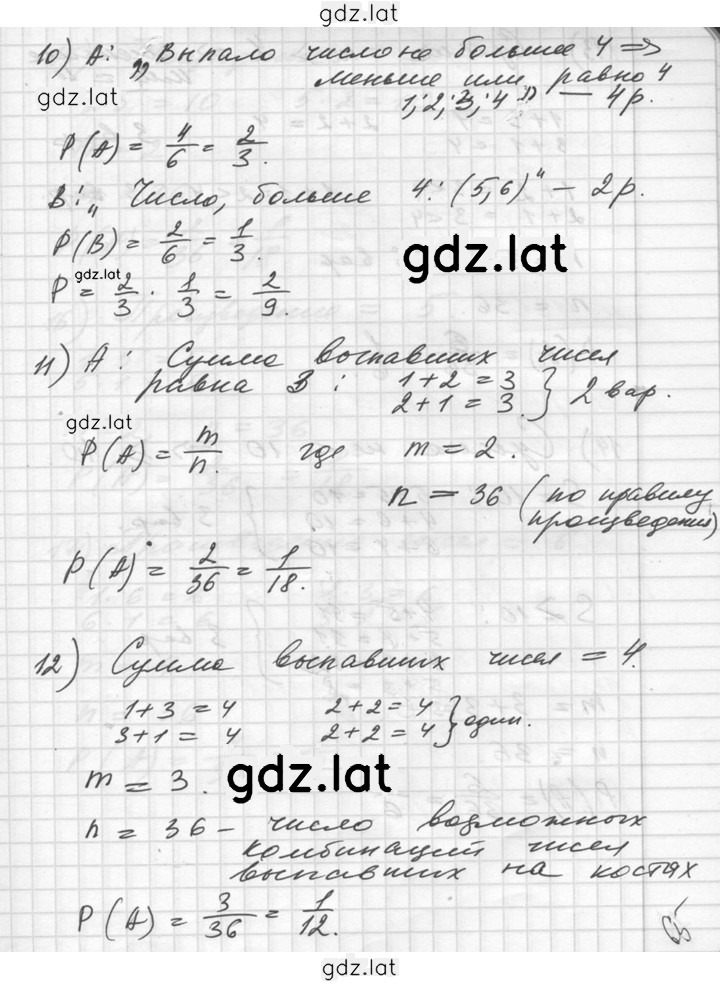 gdz.lat
10) А: „Выпало число не больше 4 =>
меньше или равно 4
gdz.lat
1; 2; 3; 4" — 4 р.
P(A) = 4/6 = 2/3.
В: „Число, больше 4: (5,6)" – 2 р.
P(B) = 2/6 = 1/3.
gdz.lat
gdz.lat
P = 2/3 · 1/3 = 2/9.
11) А: Сумма выпавших чисел
равна 3: 1+2=3
2+1=3. } 2 вар.
gdz.lat
P(A) = m/n. где m = 2.
n = 36 (по правилу
произведения)
P(A) = 2/36 = 1/18.
12) Сумма выпавших чисел = 4.
1+3=4 2+2=4
3+1=4 2+2=4 } один.
m = 3.
gdz.lat
n = 36 – число возможных
комбинаций чисел
выпавших на костях
P(A) = 3/36 = 1/12.
gdz.lat